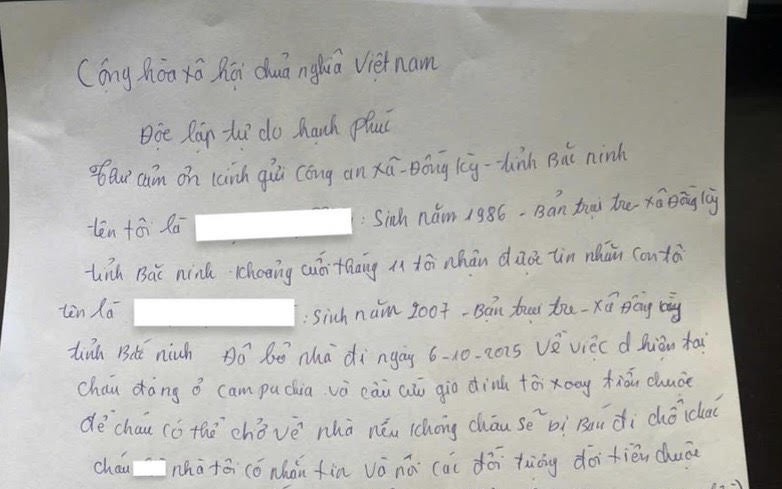 Cộng hòa xã hội chuả nghĩa Việt nam
Độc lập tự do hạnh phuć
Thư cảm ơn kính gửi Công an xã - Đồng Kỳ - tỉnh Bắc ninh
tên tôi là : Sinh năm 1986 - Bản trại tre - xã Đồng Kỳ
tỉnh Bắc ninh Khoảng cuối tháng 11 tôi nhận được tin nhắn con tôi
tên là : Sinh năm 2007 - Bản trại tre - Xã Đồng Kỳ
tỉnh Bắc ninh Đã bỏ nhà đi ngày 6-10-2025 Về việc d hiện tại
cháu đang ở cam pu chia và cầu cứu gia đình tôi xoay tiền chuộc
để cháu có thể chở về nhà nếu không cháu sẽ bị Bán đi chỗ khác
cháu nhà tôi có nhắn tin và nói các đối tượng đòi tiền chuộc